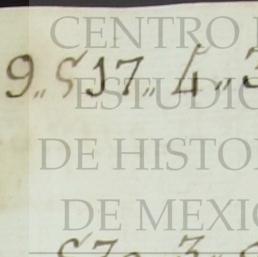 CENTRO
9,, 517,, 4,, 3
ESTUDIO
DE HISTO
DE MEXIC